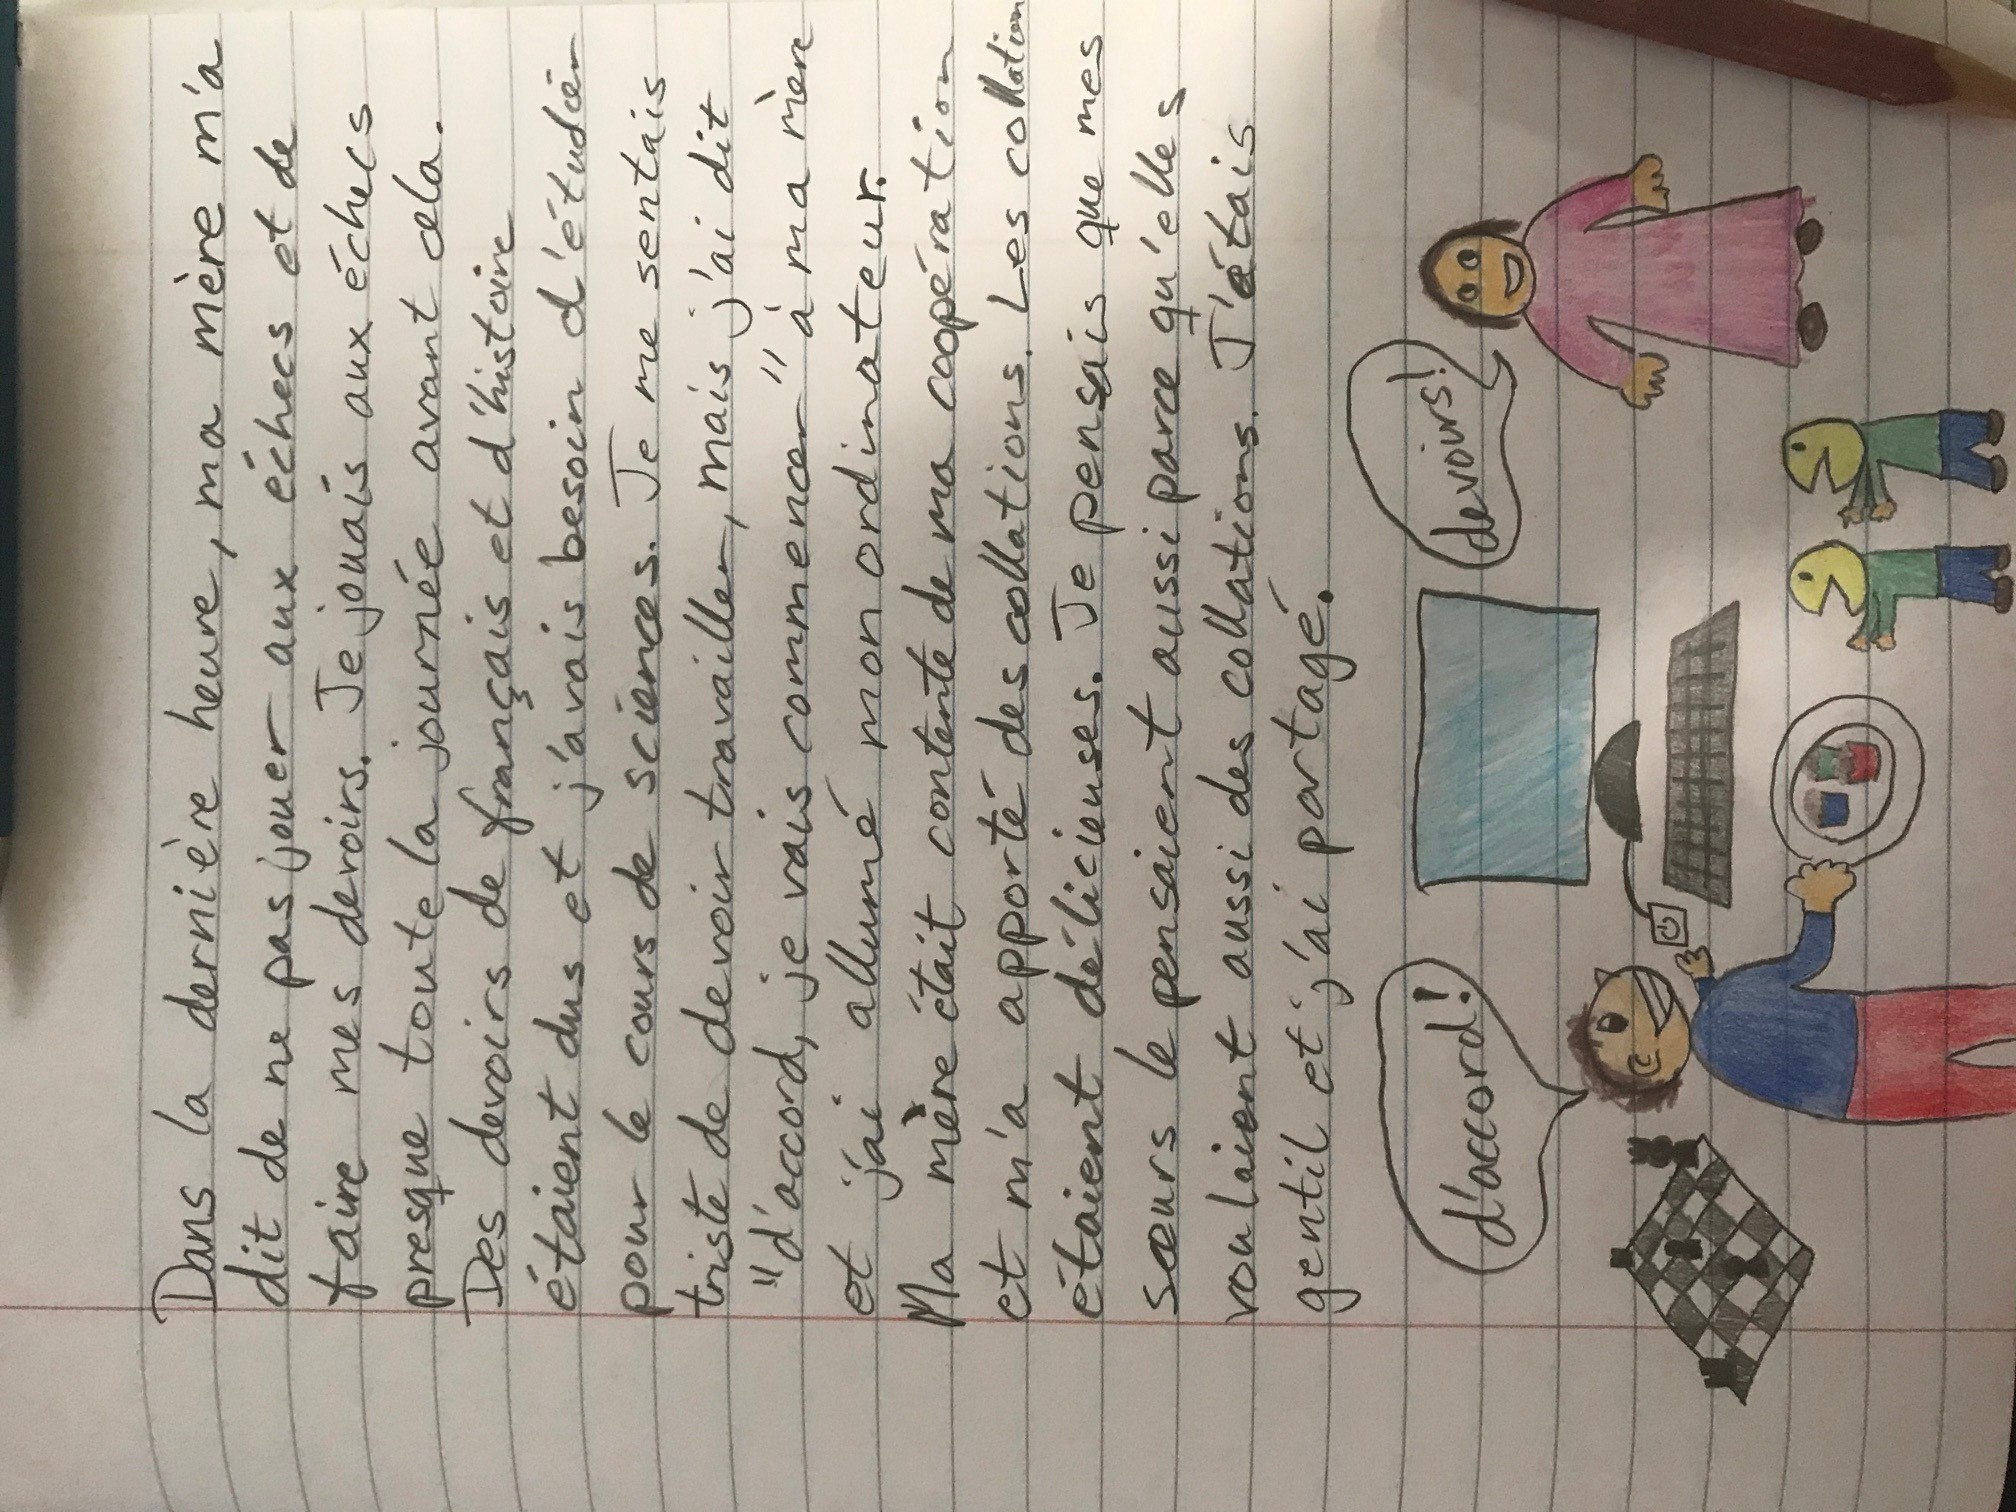 Dans la dernière heure, ma mère m'a
dit de ne pas jouer aux échecs et de
faire mes devoirs. Je jouais aux échecs
presque toute la journée avant cela.
Des devoirs de français et d'histoire
étaient dus et j'avais besoin d'étudier
pour le cours de sciences. Je me sentais
triste de devoir travailler, mais j'ai dit
"d'accord, je vais commencer" à ma mère
et j'ai allumé mon ordinateur.
Ma mère était contente de ma coopération
et m'a apporté des collations. Les collation
étaient délicieuses. Je pensais que mes
sœurs le pensaient aussi parce qu'elles
voulaient aussi des collations. J'étais
gentil et j'ai partagé.
d'accord!
devoirs!